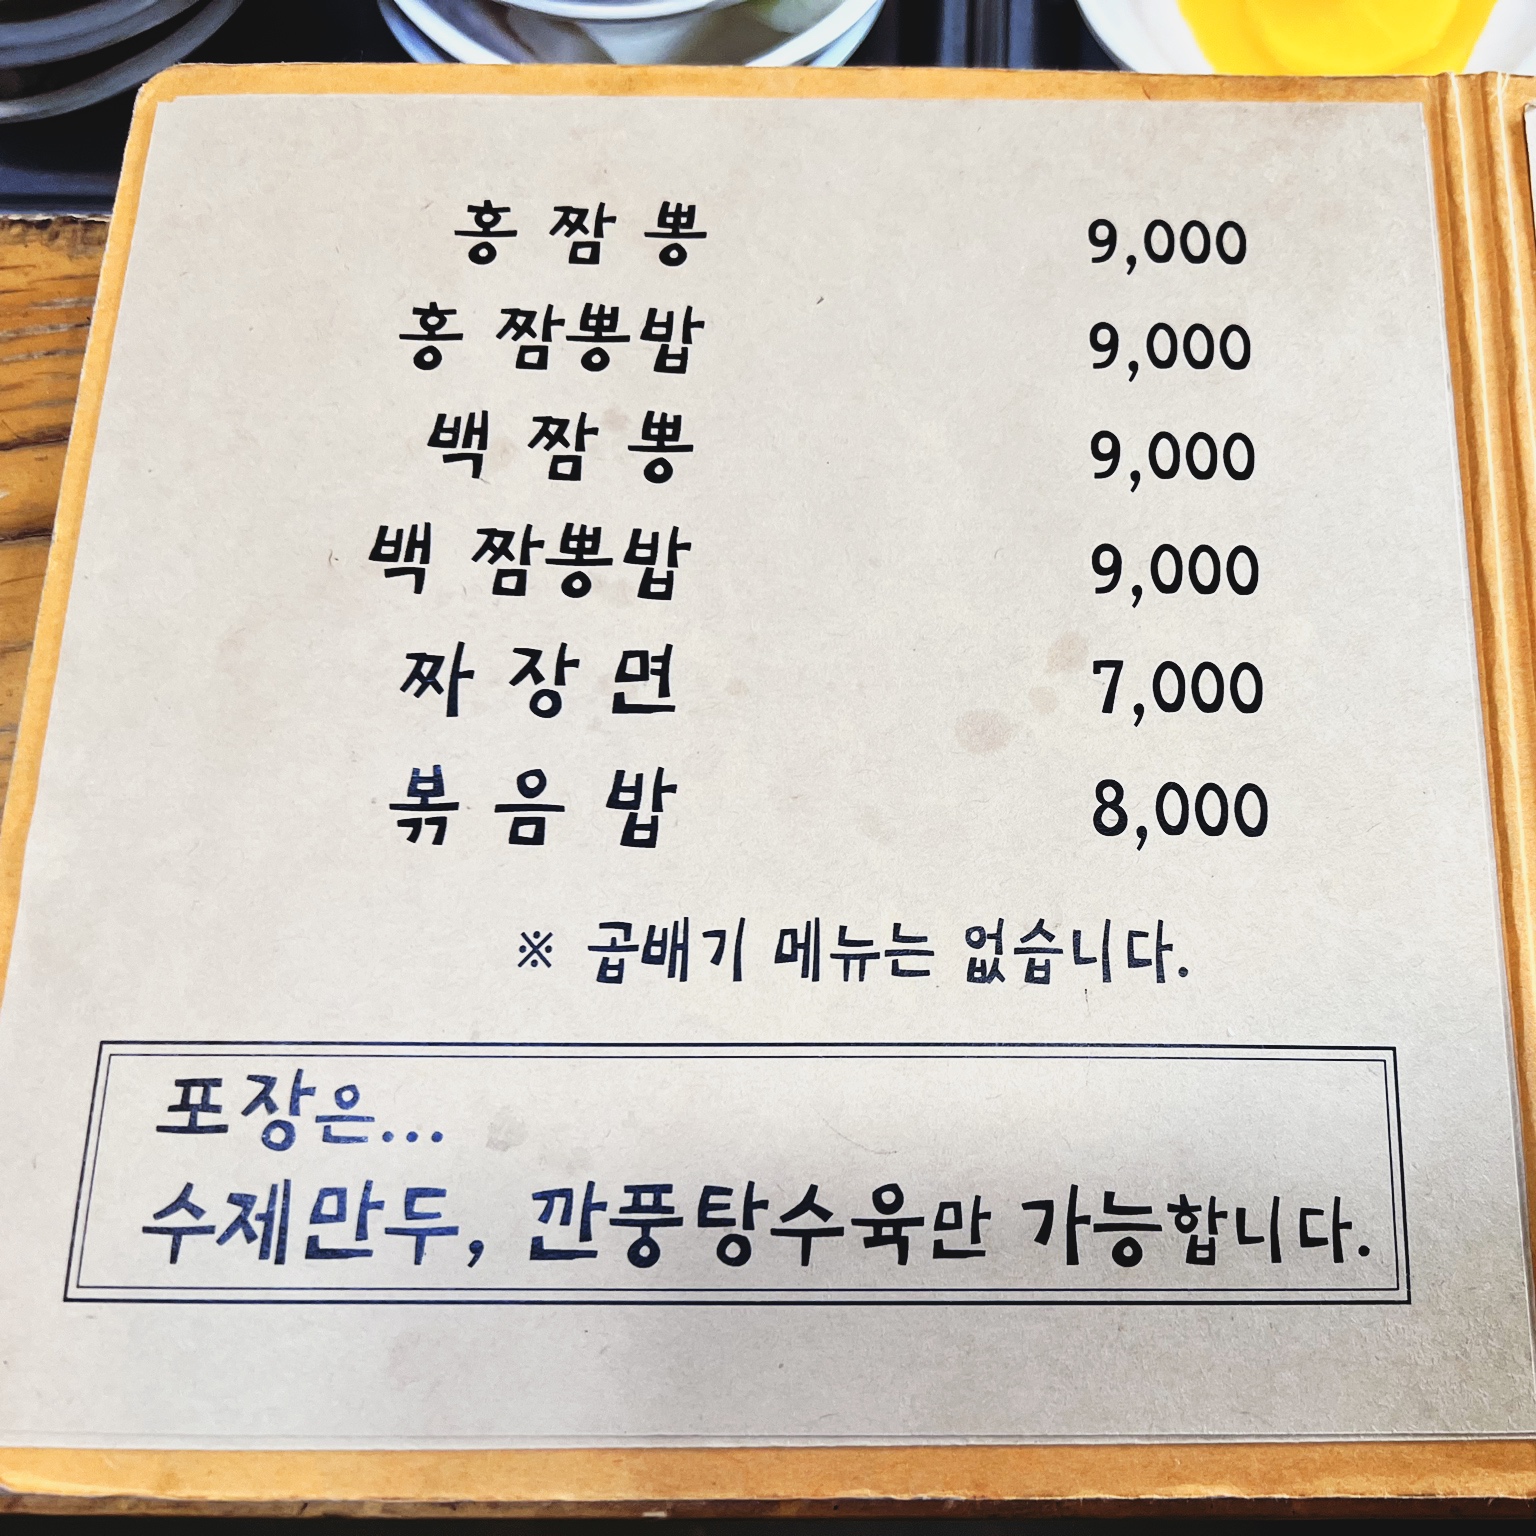 홍 짬 뽕 9,000
홍 짬뽕밥 9,000
백 짬 뽕 9,000
백 짬뽕밥 9,000
짜 장 면 7,000
볶 음 밥 8,000
※ 곱배기 메뉴는 없습니다.
포장은...
수제만두, 깐풍탕수육만 가능합니다.